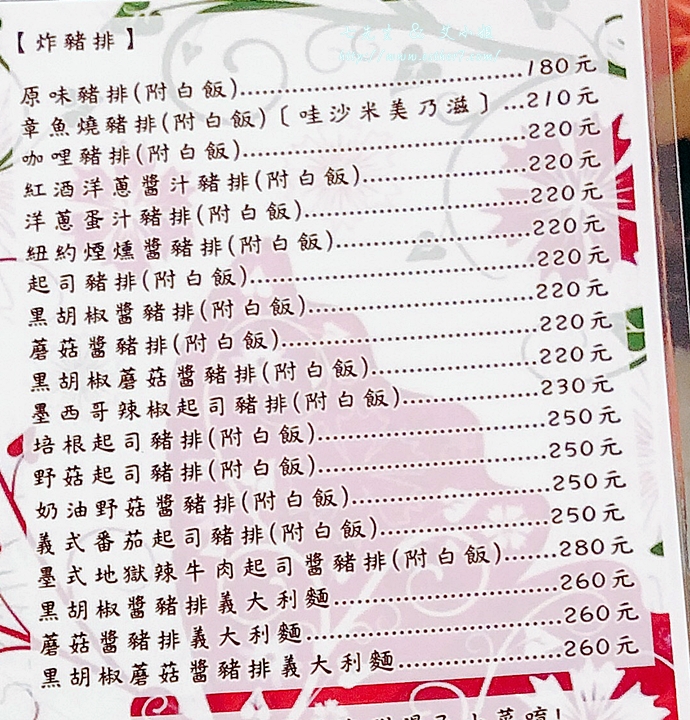 【炸豬排】
原味豬排(附白飯)......180元
章魚燒豬排(附白飯)〔哇沙米美乃滋〕...210元
咖哩豬排(附白飯)......220元
紅酒洋蔥醬汁豬排(附白飯)......220元
洋蔥蛋汁豬排(附白飯)......220元
紐約煙燻醬豬排(附白飯)......220元
起司豬排(附白飯)......220元
黑胡椒醬豬排(附白飯)......220元
蘑菇醬豬排(附白飯)......220元
黑胡椒蘑菇醬豬排(附白飯)......220元
墨西哥辣椒起司豬排(附白飯)......230元
培根起司豬排(附白飯)......250元
野菇起司豬排(附白飯)......250元
奶油野菇醬豬排(附白飯)......250元
義式番茄起司豬排(附白飯)......250元
墨式地獄辣牛肉起司醬豬排(附白飯)......280元
黑胡椒醬豬排義大利麵......260元
蘑菇醬豬排義大利麵......260元
黑胡椒蘑菇醬豬排義大利麵......260元
小菜唷!